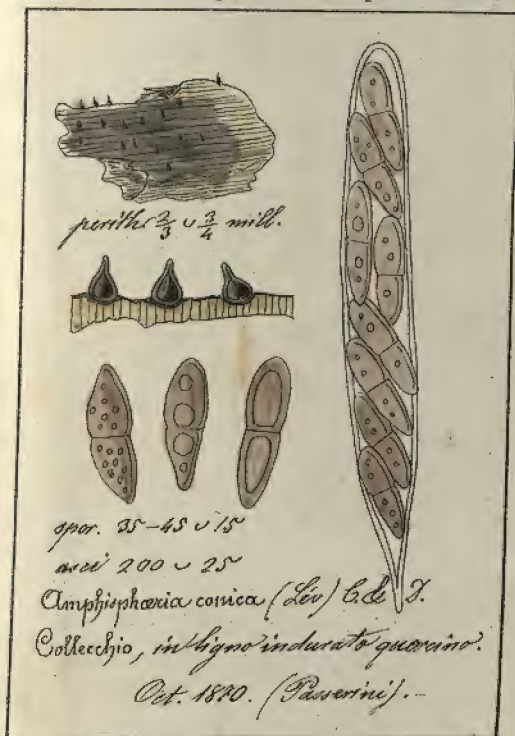 perith. 2/3 ᴗ 3/4 mill.
spor. 35-45 ᴗ 15
asci 200 ᴗ 25
Amphisphæria conica (Lév) C. &
Collecchio, in ligno indurato quercino.
Oct. 1870. (Passerini).-